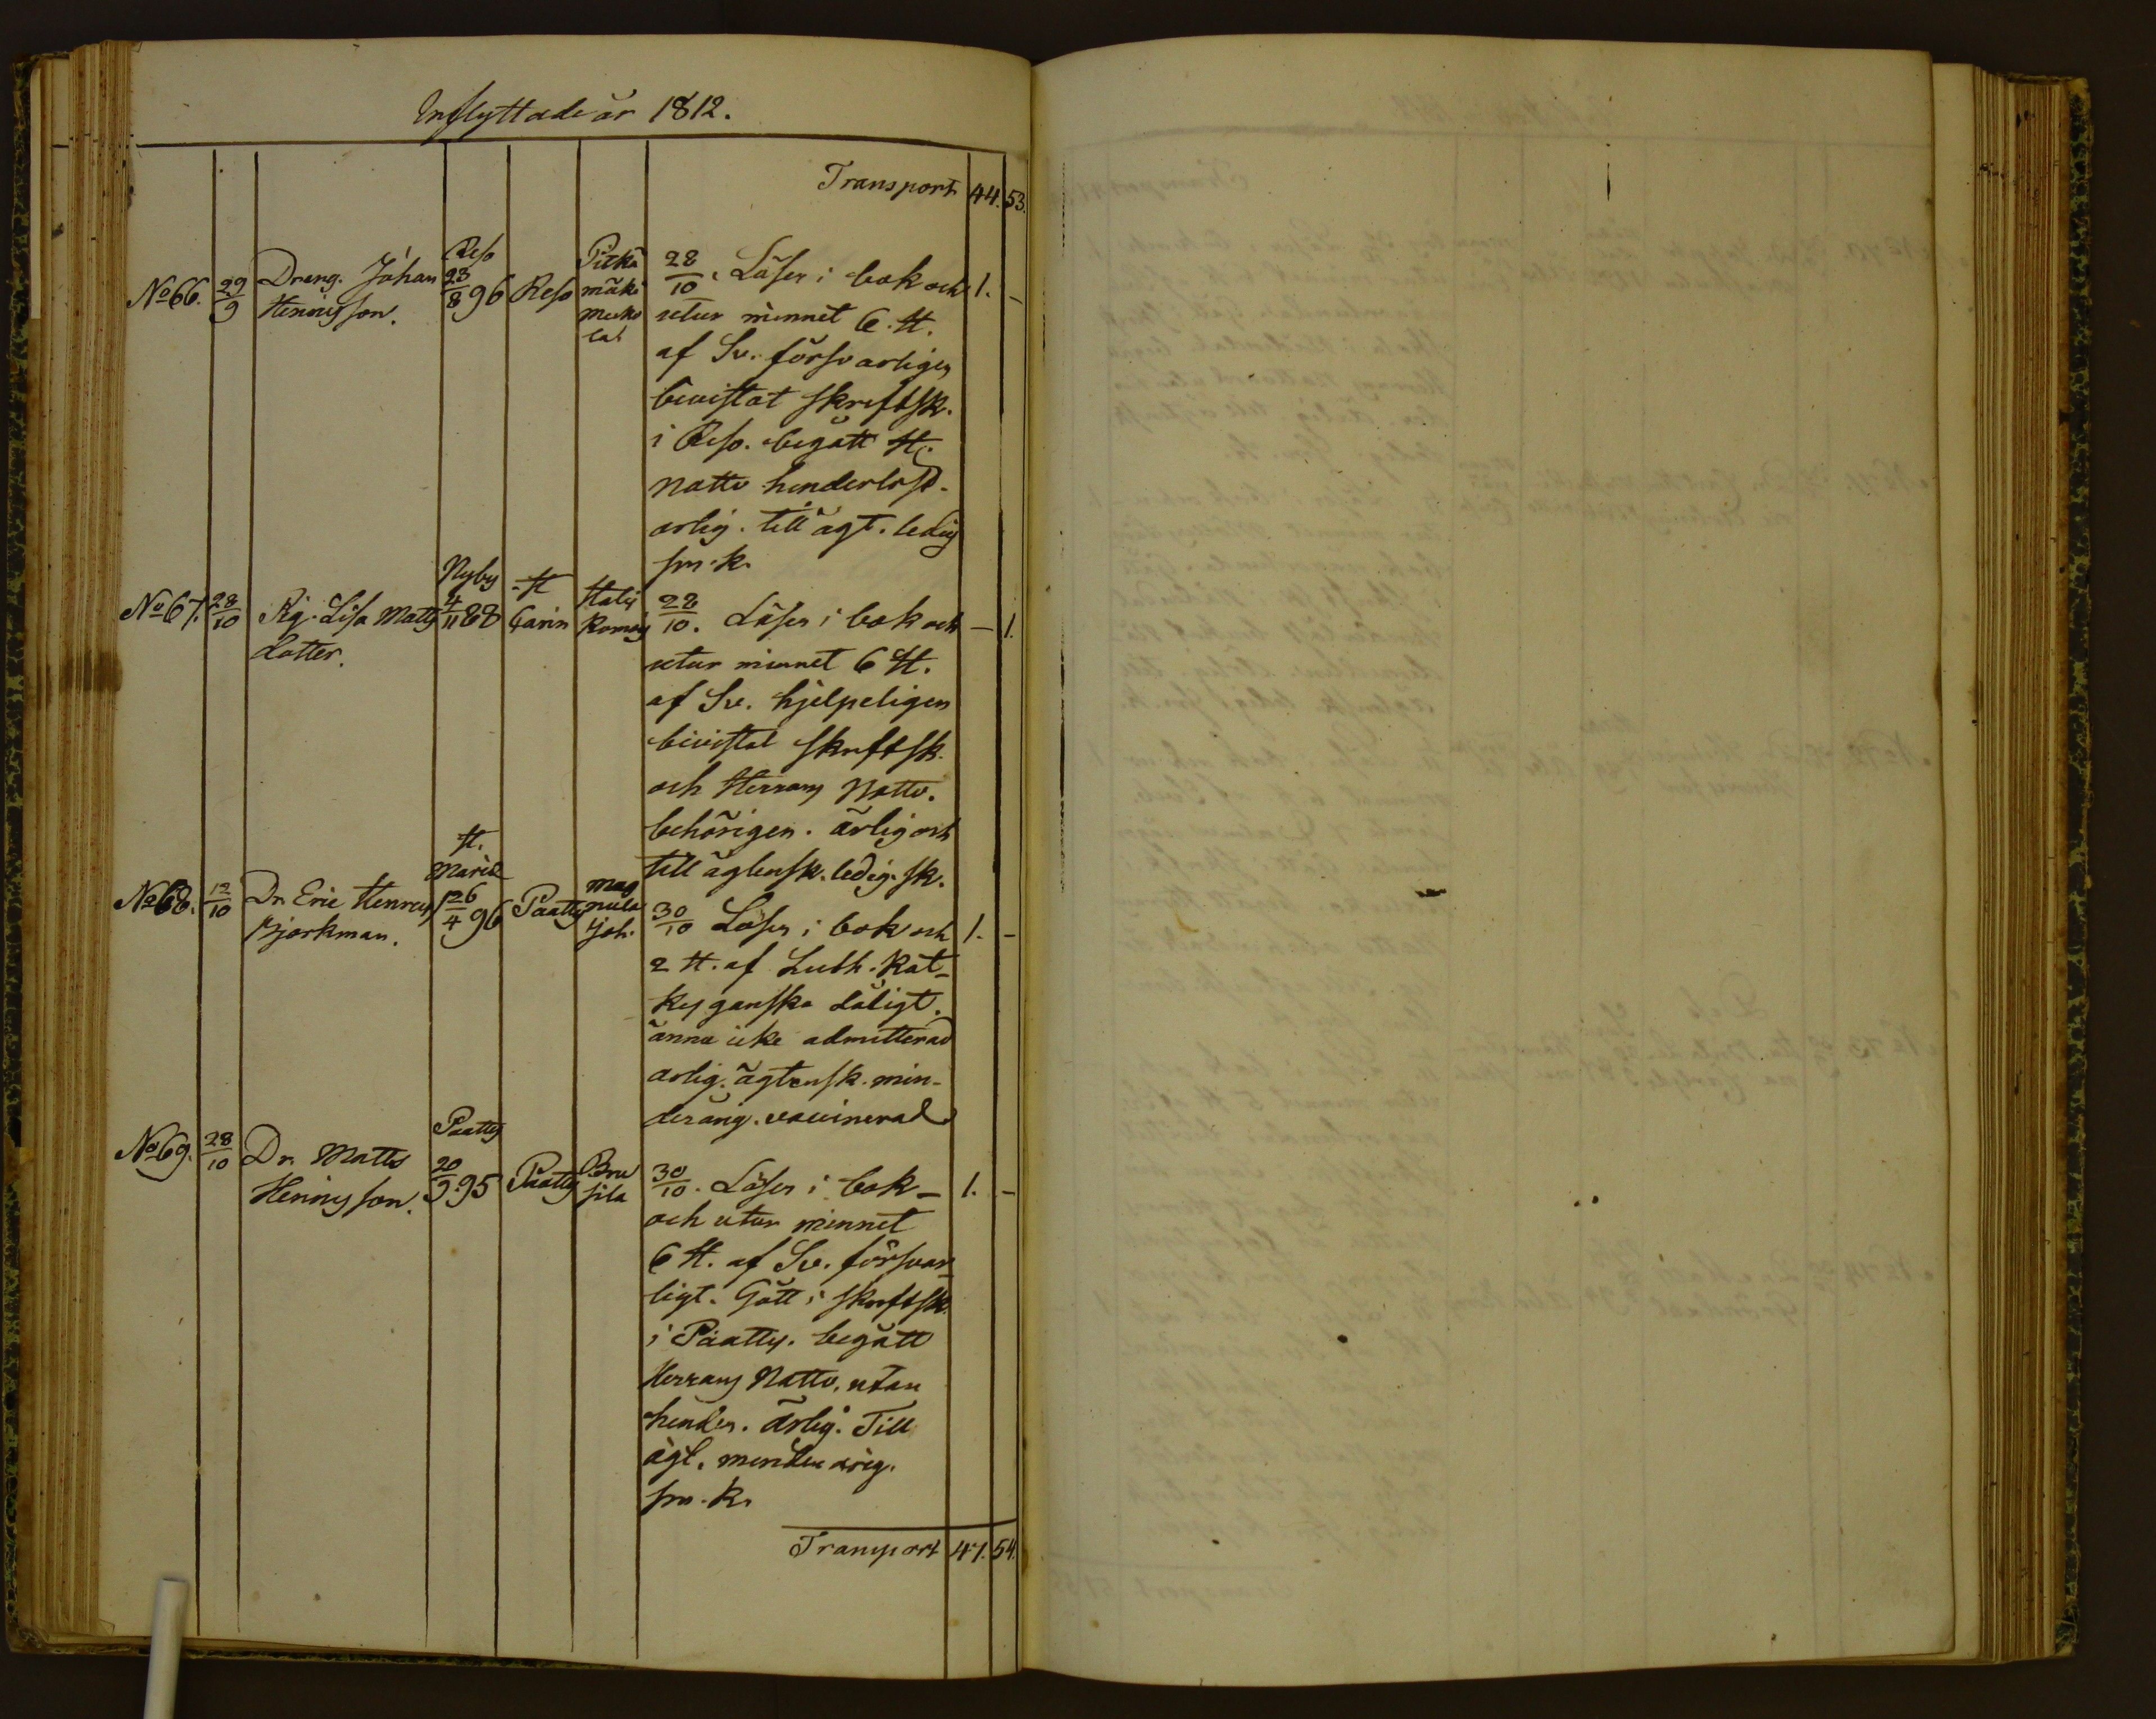 Inflyttade år 1812.
Transport 44. 53.
No 66. 29/9 Dreng. Johan Henricsson. Reso 23/8 96 Reso Pitkä mäki 28/10. Läser i bok och 1. –
utur minnet 6 H.
af Sv. försvarligen
bevistat skriftsk.
i Reso. begått H.
Nattv. hinderlöst.
ärlig. till ägt. ledig
sm. k.
No 67. 28/10 Pig. Lisa Matts dotter. Nyby 4/11 88 St Carin 28/10. Läser i bok och – 1.
utur minnet 6 H.
af Sv. hjelpeligen
bevistat skriftsk.
och Herrans Nattv.
behörigen. ärlig och
till äktensk. ledig. sk.
No 68. 12/10 Dr. Eric Henrics Björkman. St. Mariæ 126/4 96 Paatty Mag nula Joh. 30/10 Läser i bok och 1. –
2 H. af Luth. Kat-
kes ganska dåligt.
ännu icke admitterad
ärlig. ägtensk. min-
derårig. vaccinerad
No 69. 28/10 Dr. Matts Henricsson. Paatty 20/9. 95 Paatty 30/10. Läser i bok – 1. –
och utur minnet
6 H. af Sv. försvar
ligt. Gått i skriftsk.
i Paatty. begått
Herrans Nattv. utan
hinder. Ärlig. Till
ägt. minderårig.
sm. k.
Transport 47. 54.